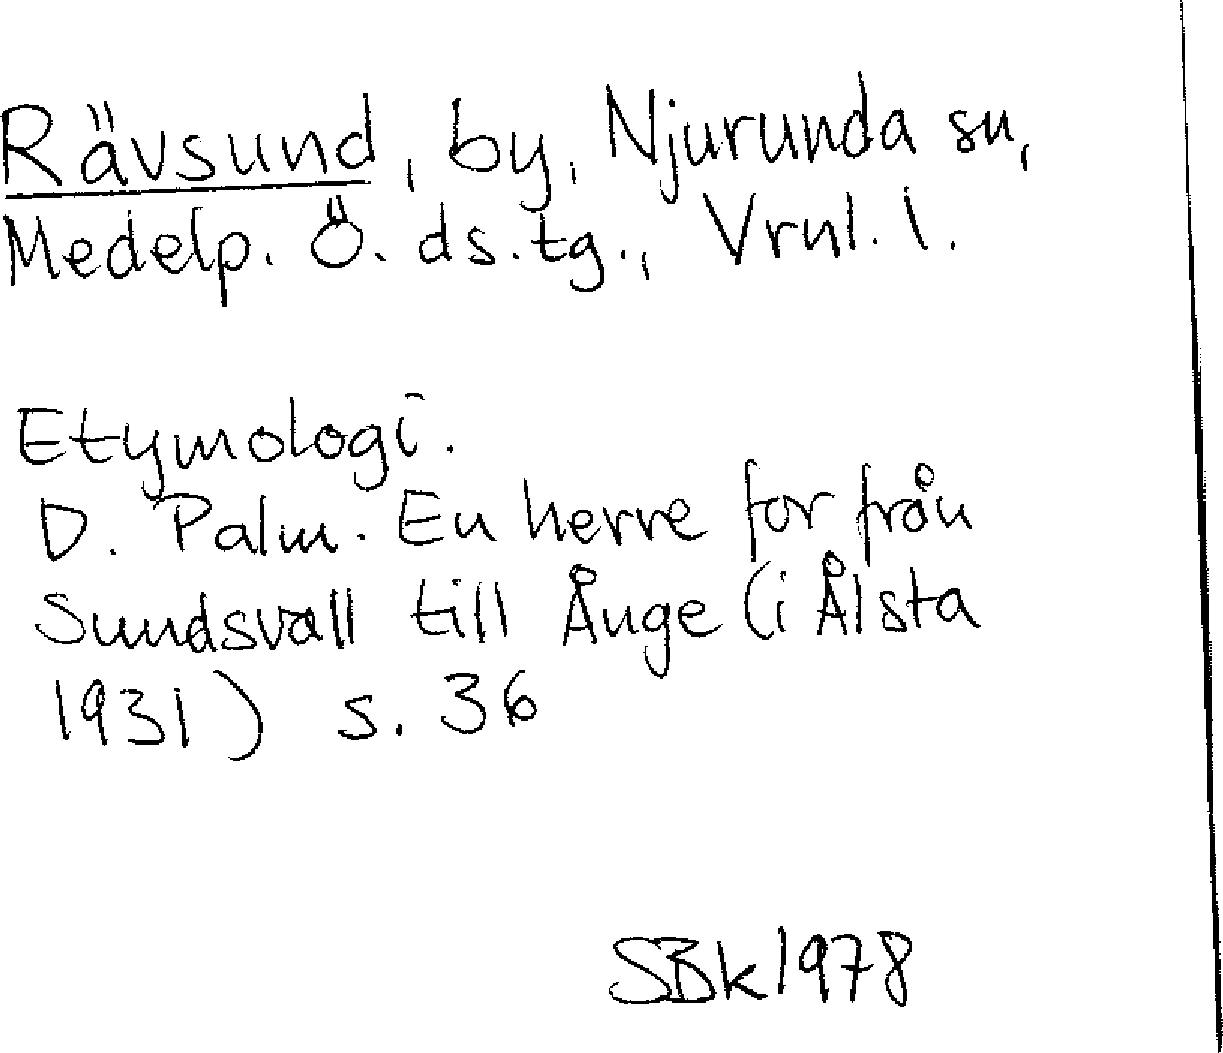 Rävsund, by, Njurunda sn,
Medelp. Ö. ds.tg., Vrnl. l.
Etymologi.
D. Palm. En herre for från
Sundsvall till Ånge (i Ålsta
1931) s. 36
SBk 1978